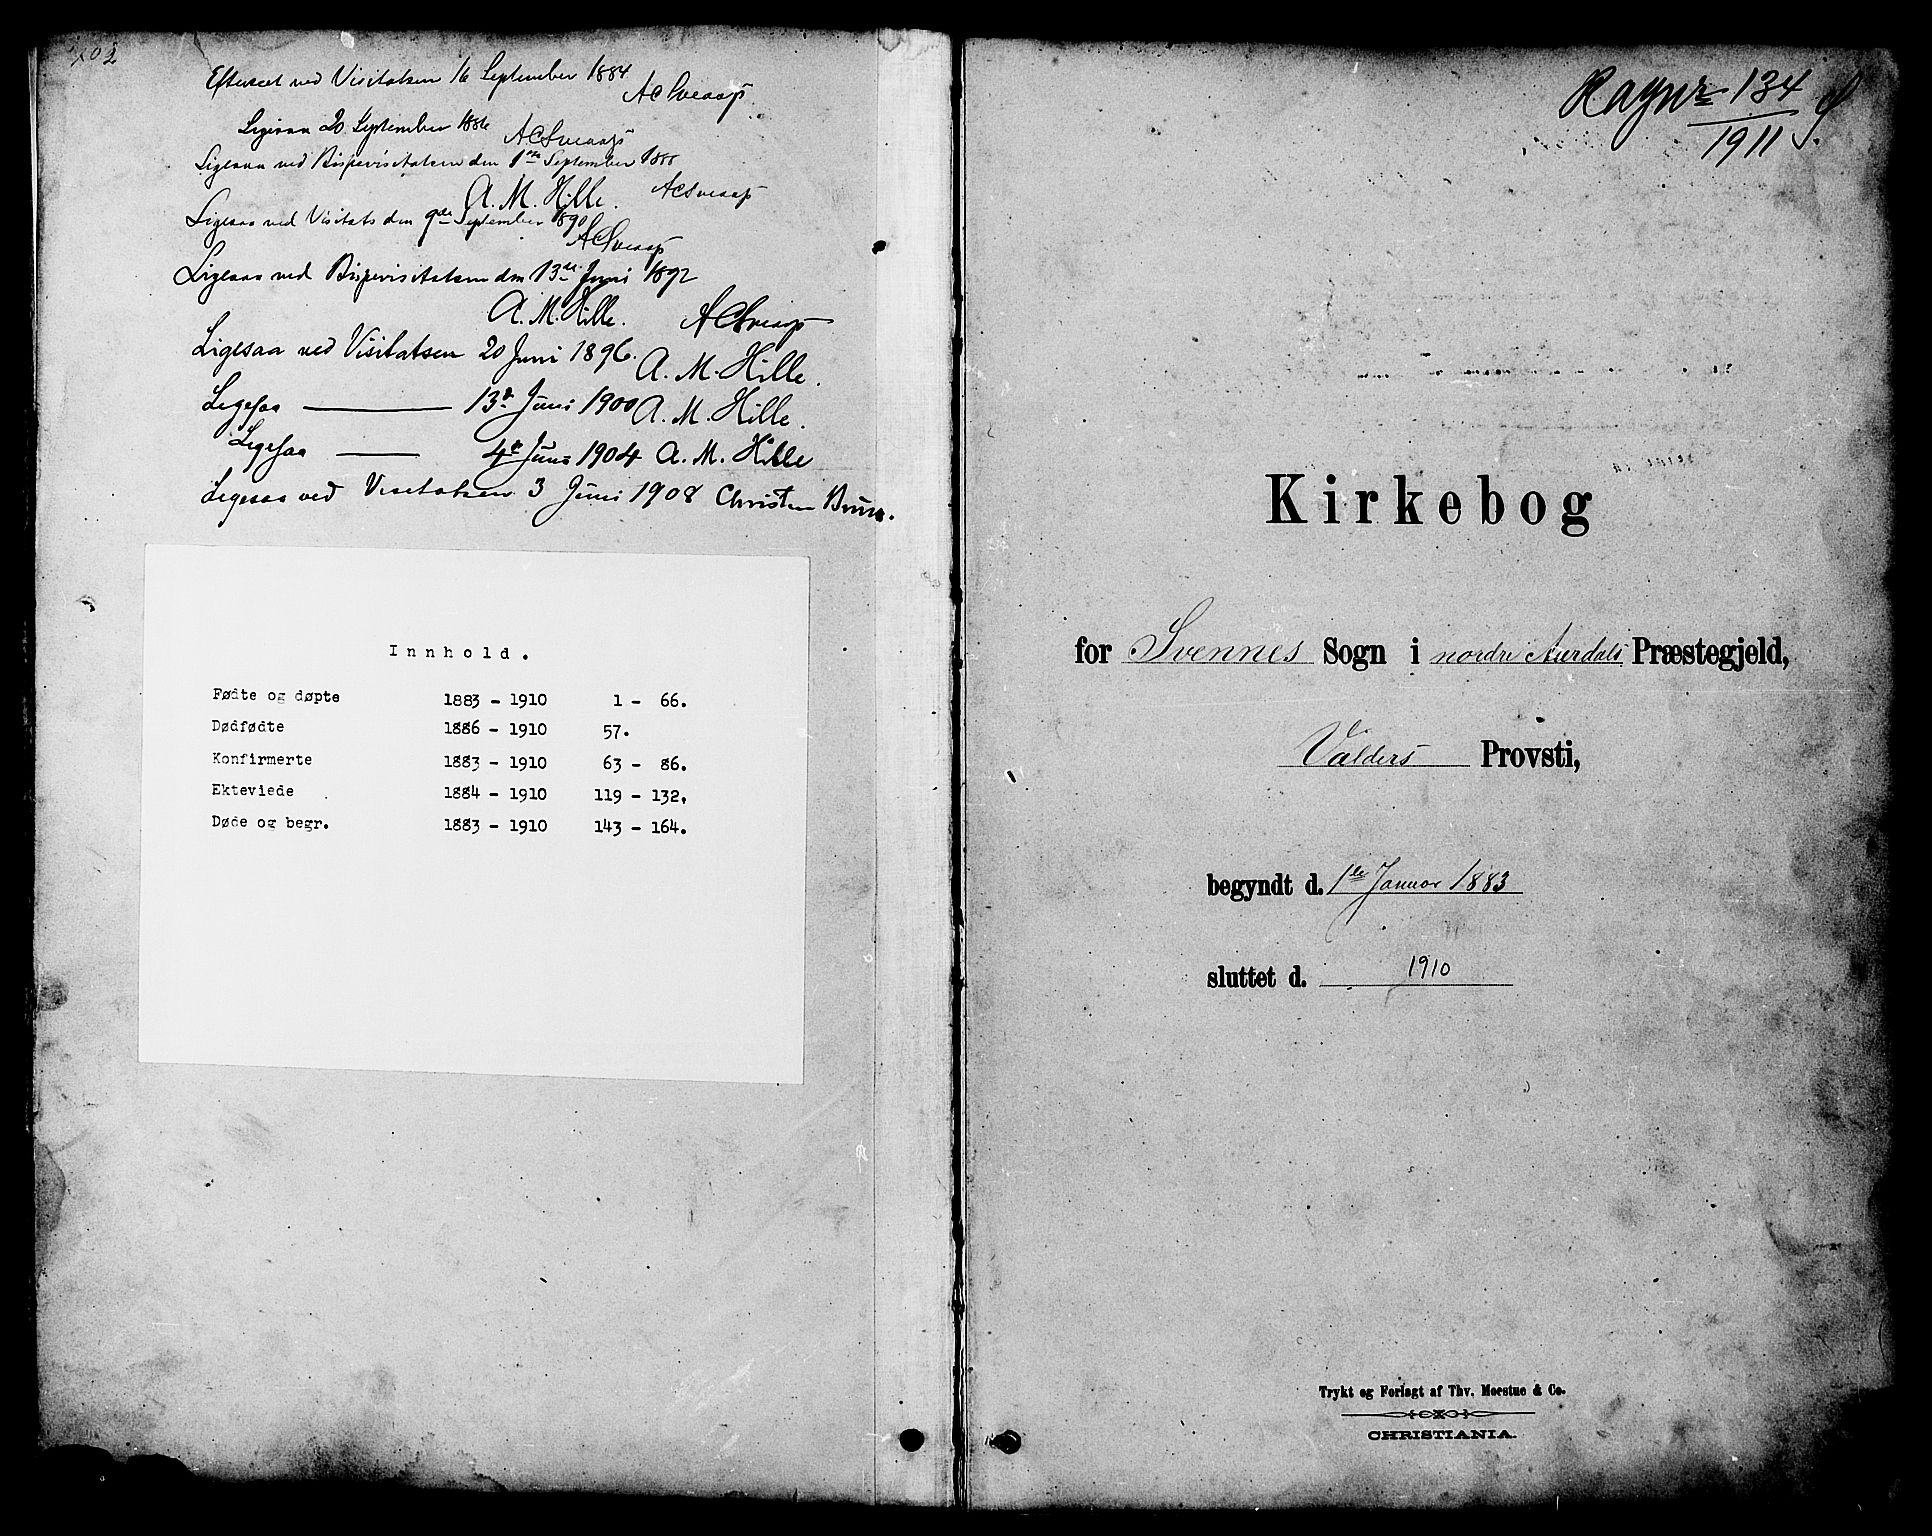 Efterseet ved Visitatsen 16 September 1884
AC Sveaas
Ligesaa 20 September 1886
AC Sveaas
Ligesaa ved Bispevisitatsen den 1ste September 1888
A. M. Hille. AC Sveaas
Ligesaa ved Visitats den 9de September 1890
AC Sveaas
Ligesaa ved Bispevisitatsen den 13de Juni 1892
A. M. Hille. AC Sveaas
Ligesaa ved Visitatsen 20 Juni 1896. A. M. Hille.
Ligesaa — 13de Juni 1900 A. M. Hille.
Ligesaa — 4de Juni 1904 A. M. Hille
Ligesaa ved Visitatsen 3 Juni 1908 Christen Brun.
Innhold.
Fødte og døpte 1883 - 1910 1 - 66.
Dødfødte 1886 - 1910 57.
Konfirmerte 1883 - 1910 63 - 86.
Ekteviede 1884 - 1910 119 - 132.
Døde og begr. 1883 - 1910 143 - 164.
134
1911
Kirkebog
for Svennes Sogn i nordre Aurdals Præstegjeld,
Valders Provsti,
begyndt d. 1ste Januar 1883
sluttet d. 1910
Trykt og Forlagt af Thv. Moestue & Co.
CHRISTIANIA.